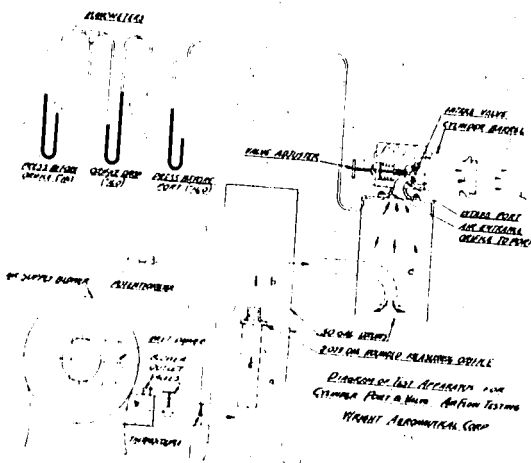 MANOMETERS
PRESS BEFORE
ORIFICE
ORIFICE DROP
("H₂O)
PRESS BEFORE
PORT ("H₂O)
VALVE ADJUSTER
INTAKE VALVE
CYLINDER BARREL
INTAKE PORT
AIR ENTRANCE
ORIFICE TO PORT
AIR SUPPLY BLOWER
POTENTIOMETER
BLOWER
OUTLET
50 GAL DRUMS
ROUNDED MEASURING ORIFICE
DIAGRAM OF TEST APPARATUS FOR
CYLINDER PORT & VALVE AIRFLOW TESTING
WRIGHT AERONAUTICAL CORP